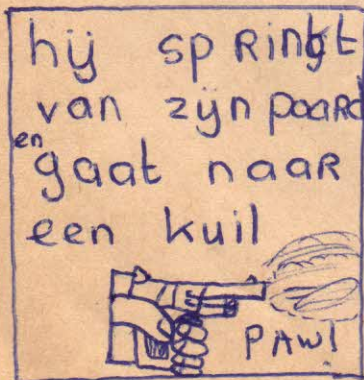 hij springt
van zijn paard
en gaat naar
een kuil
PAW!